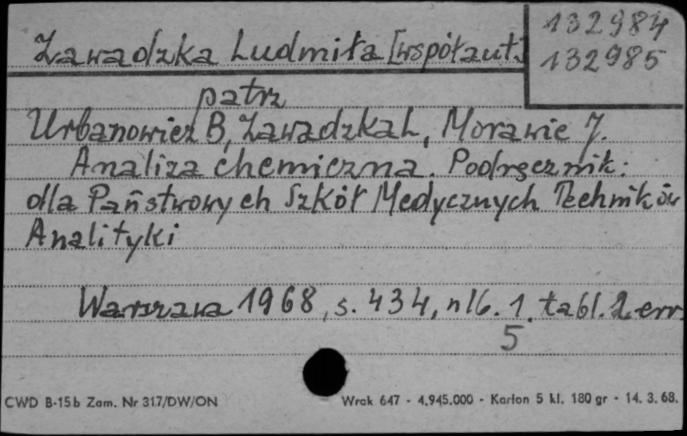 132984
132985
Zawadzka Ludmiła [współaut.]
patrz
Urbanowicz B, Zawadzka L, Morawie J.
Analiza chemiczna. Podręcznik.
dla Państwowych Szkół Medycznych Techników
Analityki
Warszawa 1968, s. 434, nlb. 1. tabl. 2 err
5
CWD B-15b Zam. Nr 317/DW/ON
Wrak 647 - 4.945.000 - Karton 5 kl. 180 gr - 14. 3. 68.